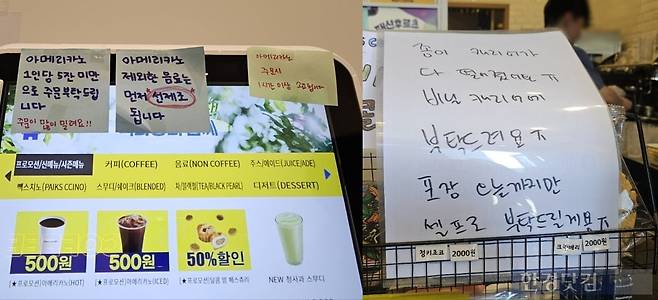 아메리카노
1인당 5잔 미만
으로 주문부탁드립
니다
주문이 많이 밀려요!!
아메리카노
제외한 음료는
먼저 선제조
됩니다
아메리카노
주문시
1시간 이상
프로모션/신메뉴/시즌메뉴
커피(COFFEE)
음료(NON COFFEE)
주스/에이드(JUICE/ADE)
빽스치노(PAIKS CCINO)
스무디/쉐이크(BLENDED)
차/블랙펄(TEA/BLACK PEARL)
디저트(DESSERT)
500원
500원
50%할인
[★프로모션]아메리카노(HOT)
[★프로모션]아메리카노(ICED)
NEW 청사과 스무디
종이 캐리어가
다 떨어졌어요 ㅠ
비닐 캐리어에
부탁드려요 ㅠ
포장
셀프로 부탁드릴게요 ㅠ
2000원
2000원
한경닷컴